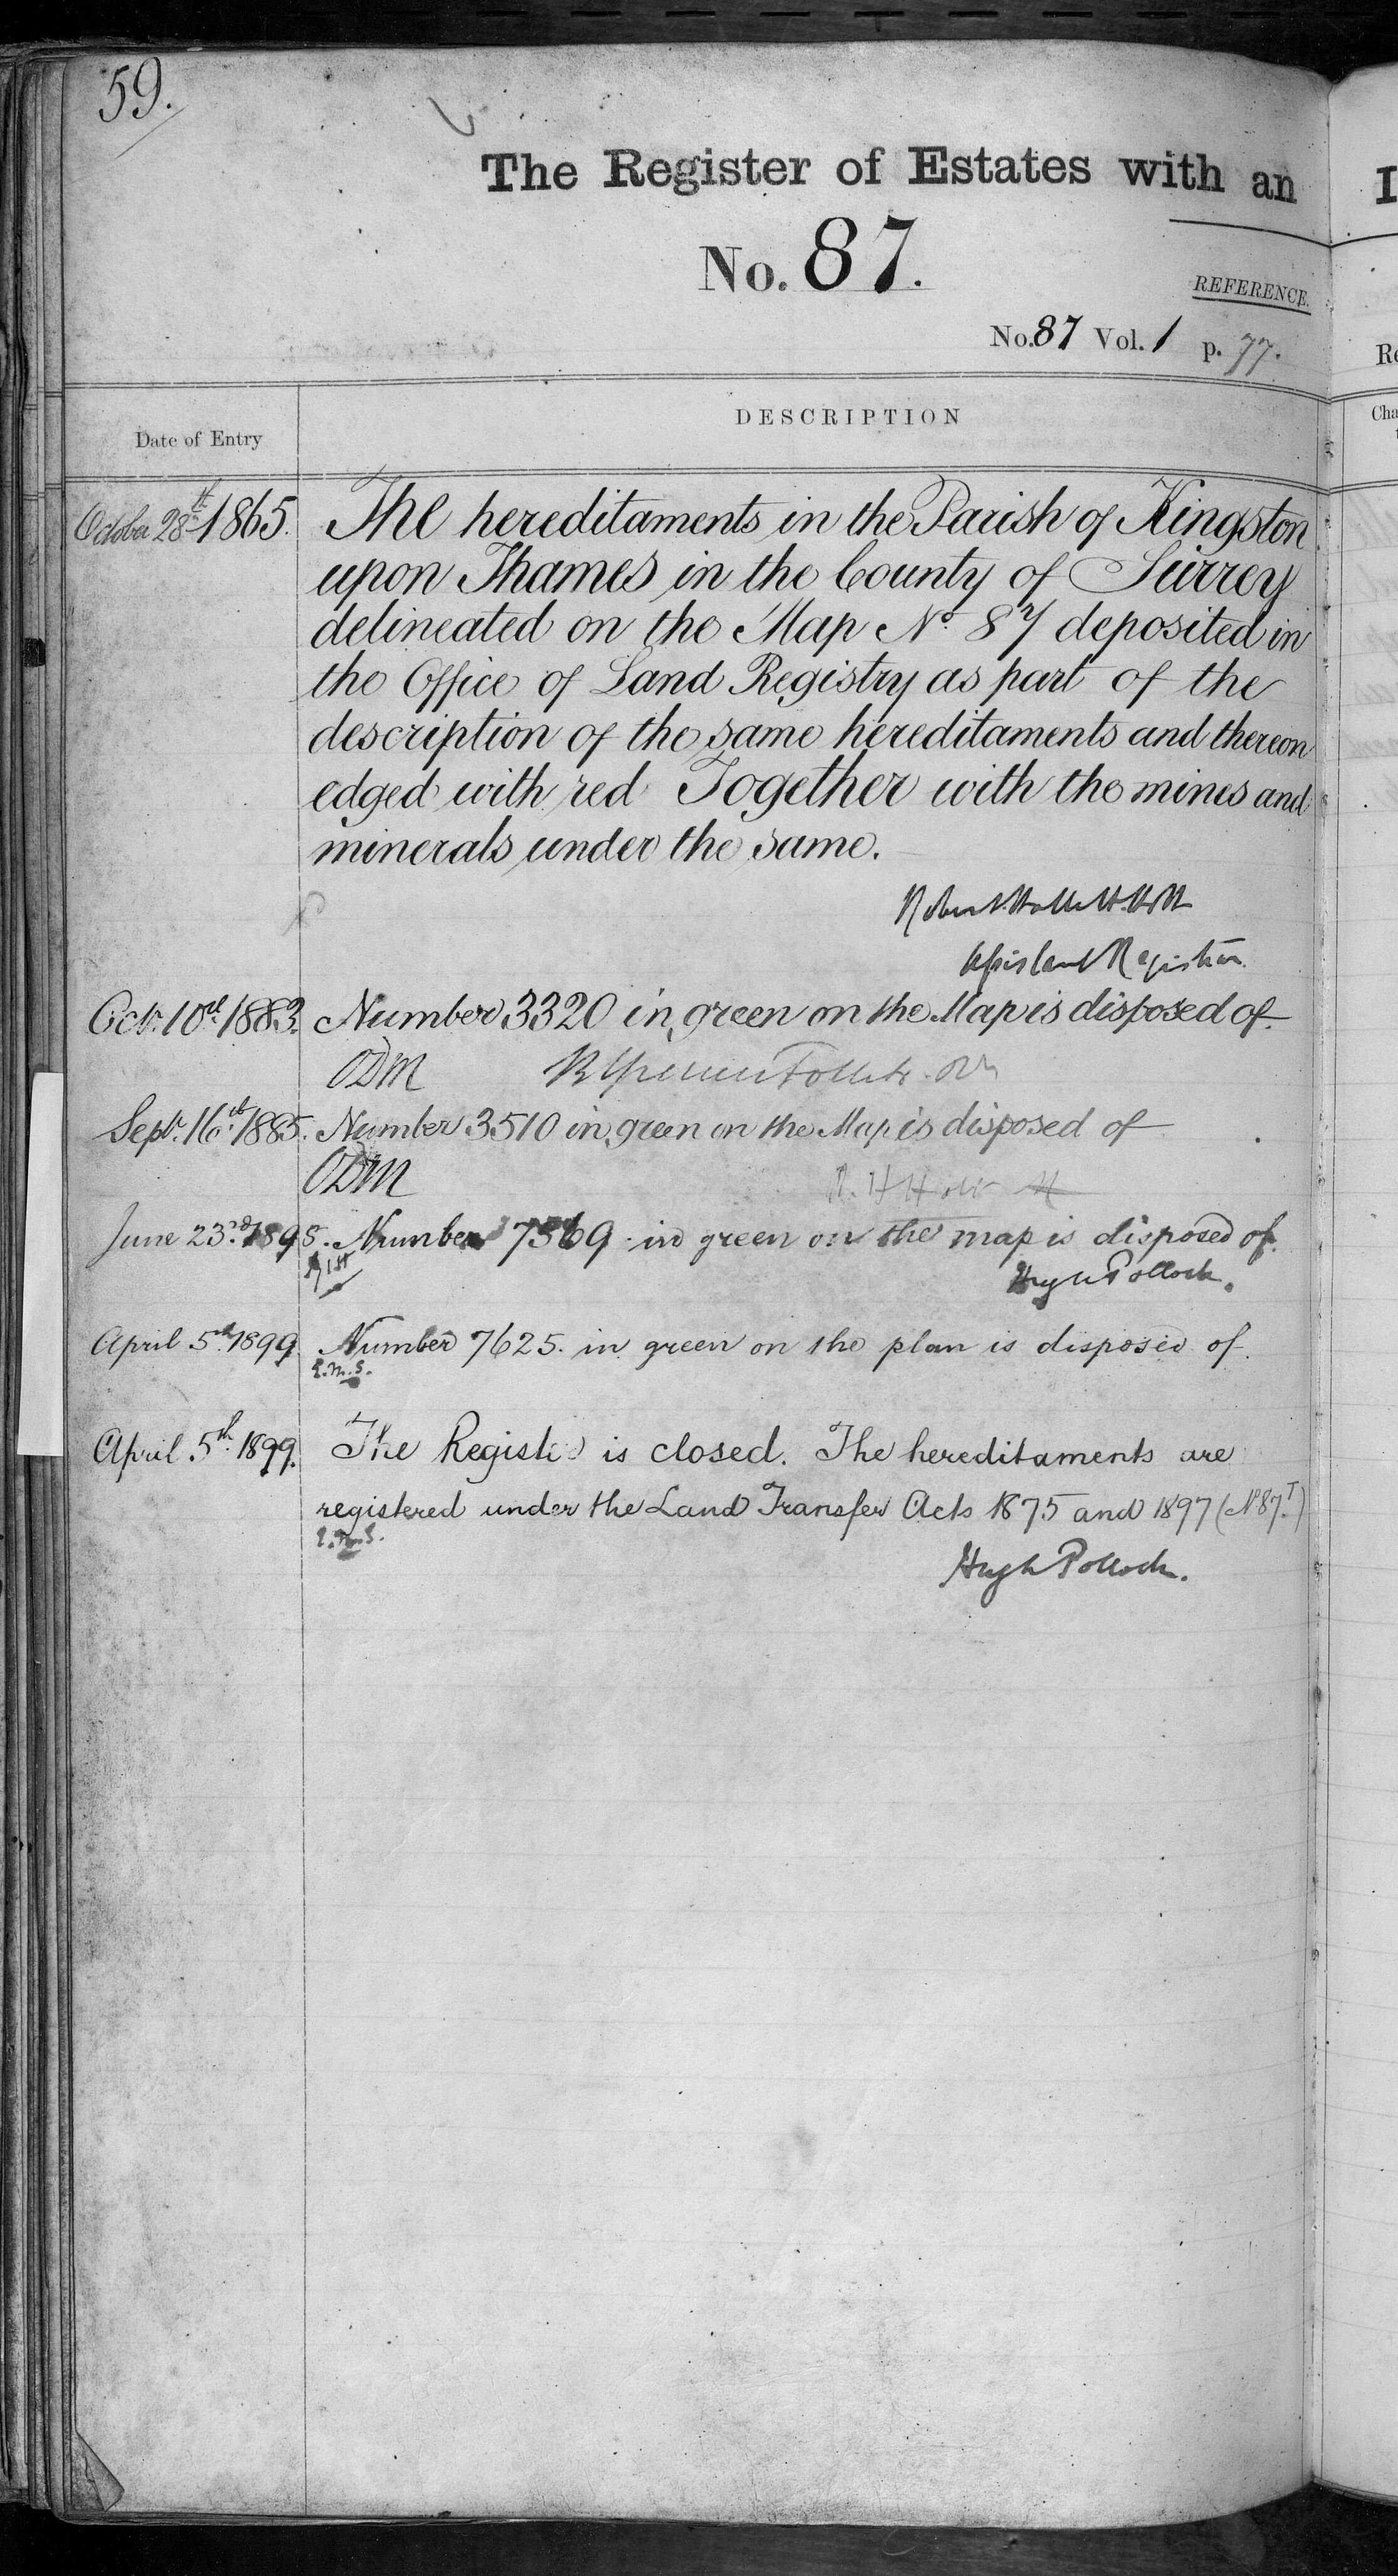 59.
The Register of Estates with an
No. 87.
REFERENCE.
No. 87 Vol. 1 p. 77.
Date of Entry
DESCRIPTION
October 28th 1865. The hereditaments in the Parish of Kingston
upon Thames in the County of Surrey
delineated on the Map No. 87 deposited in
the Office of Land Registry as part of the
description of the same hereditaments and thereon
edged with red Together with the mines and
minerals under the same.
Robert Hallett Holt
Assistant Registrar.
Octr. 10th 1883. Number 3320 in green on the Map is disposed of.
ODM
Septr. 16th 1885. Number 3510 in green on the Map is disposed of
ODM R. H Holt
June 23rd 1895. Number 7369 in green on the map is disposed of.
Hugh Pollock.
April 5th 1899. Number 7625. in green on the plan is disposed of.
E.M.S.
April 5th 1899. The Register is closed. The hereditaments are
registered under the Land Transfer Acts 1875 and 1897 (No 87.T)
E.M.S.
Hugh Pollock.
I
Re
Cha